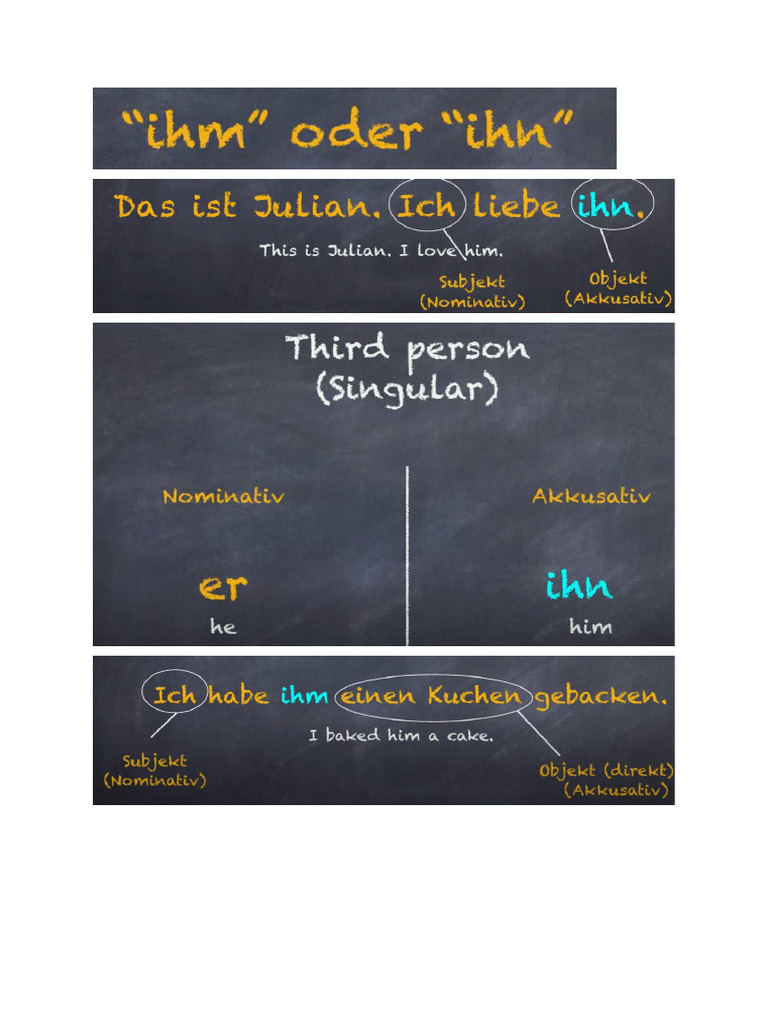 “ihm” oder “ihn”
Das ist Julian. Ich liebe ihn.
This is Julian. I love him.
Subjekt
(Nominativ)
Objekt
(Akkusativ)
Third person
(Singular)
Nominativ
Akkusativ
er
ihn
he
him
Ich habe ihm einen Kuchen gebacken.
I baked him a cake.
Subjekt
(Nominativ)
Objekt (direkt)
(Akkusativ)